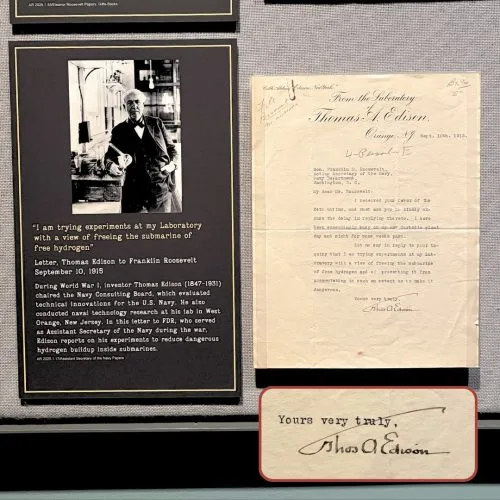 "I am trying experiments at my Laboratory
with a view of freeing the submarine of
free hydrogen"
Letter, Thomas Edison to Franklin Roosevelt
September 10, 1915
During World War I, inventor Thomas Edison (1847-1931)
chaired the Navy Consulting Board, which evaluated
technical innovations for the U.S. Navy. He also
conducted naval technology research at his lab in West
Orange, New Jersey. In this letter to FDR, who served
as Assistant Secretary of the Navy during the war,
Edison reports on his experiments to reduce dangerous
hydrogen buildup inside submarines.
From the Laboratory
of
Thomas A. Edison,
Orange, N.J. Sept. 10th, 1915.
Hon. Franklin D. Roosevelt,
Acting Secretary of the Navy,
Navy Department,
Washington, D. C.
My dear Mr. Roosevelt:
I received your favor of the
delay in replying thereto. I have
day and night for some weeks past.
Let me say in reply to your
that I am trying experiments at my Lab-
oratory with a view of freeing the submarine
of free hydrogen and of preventing it from
accumulating to such an extent as to make it
dangerous.
Yours very truly,
Thos A Edison
Yours very truly,
Thos A Edison